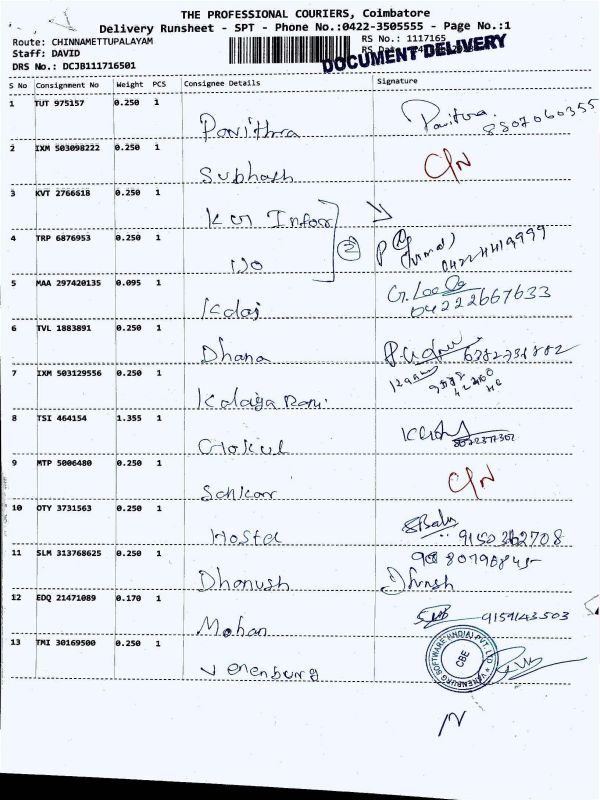 THE PROFESSIONAL COURIERS, Coimbatore
Delivery Runsheet - SPT - Phone No.:0422-3505555 - Page No.:1
Route: CHINNAMETTUPALAYAM
RS No.: 1117165
Staff: DAVID
RS
DOCUMENT DELIVERY
DRS No.: DCJB111716501
S No Consignment No Weight PCS Consignee Details Signature
1 TUT 975157 0.250 1
Pavithra Pavithra 8807060355
2 IXM 503098222 0.250 1
Subhash C/N
3 KVT 2766618 0.250 1
KGI Infoss
4 TRP 6876953 0.250 1
DO 2 0422 4419999
5 MAA 297420135 0.095 1
Kalai G. Leela 04222667633
6 TVL 1883891 0.250 1
Dhana
7 IXM 503129556 0.250 1
Kalaiya Rani
8 TSI 464154 1.355 1
Gokul
9 MTP 5006480 0.250 1
Sankar C/N
10 OTY 3731563 0.250 1
Hostel
11 SLM 313768625 0.250 1
Dhanush Dhnsh
12 EDQ 21471089 0.170 1
Mohan 9159143503
13 TMI 30169500 0.250 1
Verenburg
VARENBURG SOFTWARE INDIA PVT. LTD
CBE
N